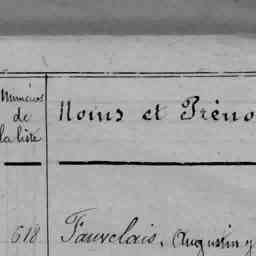 Numéros
de
la liste
Noms et Préno
618 Fauvelais, Augustin